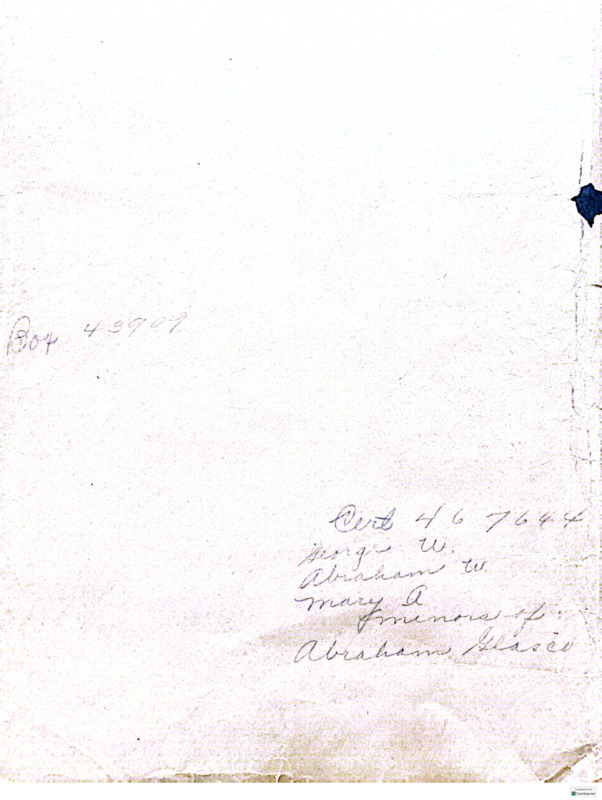 Box 43909
Cert 467644
George W.
Abraham W.
Mary A
minors of
Abraham Glasco